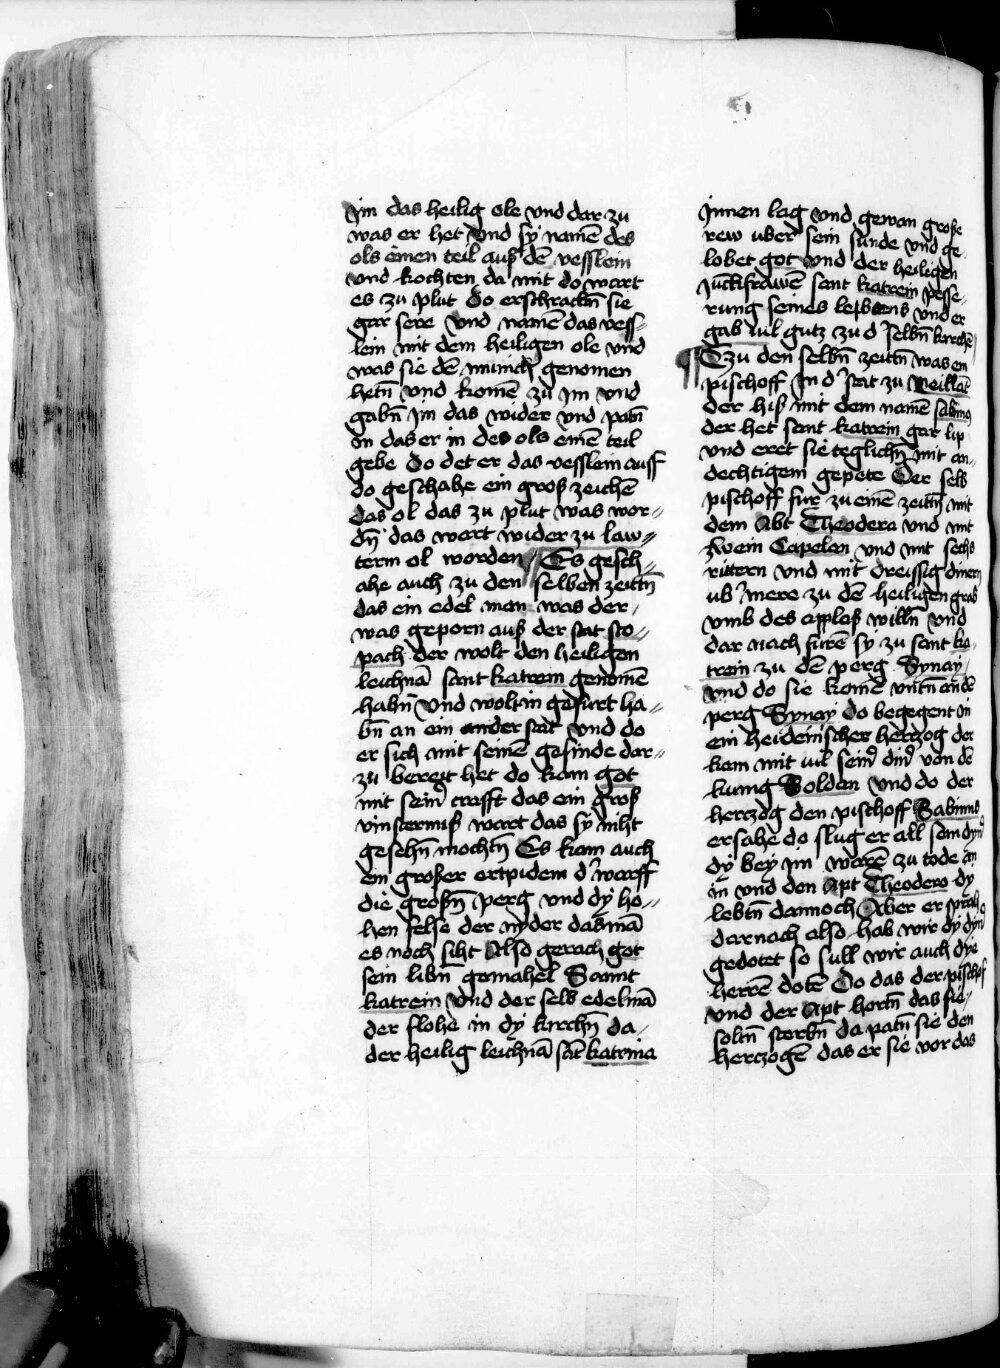 im das heilig ole vnd dar zu
was er het vnd sy namē des
ols einen teil auß dē vesslein
vnd kochten da mit do wart
es zu plut Do erschrackn̄ sie
gar sere vnd namē das vess-
lein mit dem heiligen ole vnd
was sie dē munich genomen
hetn̄ vnd komē zu im vnd
gabn̄ im das wider vnd patn̄
in das er in des ols einē teil
gebe Do det er das vesslein auff
do geschahe ein groß zeichē
das ol das zu plut was wor-
dn̄ das wart wider zu law-
term ol worden Es gesch-
ahe auch zu den selben zeittn̄
das ein edel man was der
was geporn auß der stat sto-
pach der wolt den heiligen
leichnā sant katrein genomē
habn̄ vnd wolt in gefurt ha-
bn̄ an ein ander stat vnd do
er sich mit seinē gesinde dar-
zu bereyt het do kam got
mit sein̾ crafft das ein groß
vinsterniß wart das sy niht
gesehn̄ mochtn̄ Es kam auch
ein großer ertpidem d̾ warff
die großn̄ perg vnd dy ho-
hen felse der nyder das mā
es noch siht Also gerach got
sein libn̄ gemahel Sannt
katrein vnd der selb edelmā
der flohe in dy kirchn̄ da
der heilig leichnā sāt katrina
jnnen lag vnd gewan große
rew uber sein sunde vnd ge-
lobet got vnd der heiligen
juckfrawē sant katrein pesse-
rung seines leybens vnd er
gab uil gutz zu d̾ selbn̄ kirchē
Tzu den selbn̄ zeittn̄ was ein
pischoff in d̾ stat zu meillan̄
der hiß mit dem namē sabinus
der het sant katrein gar lip
vnd eret sie teglichn̄ mit an-
dechtigem gepete Der selb
pischoff fur zu einē zeittn̄ mit
dem Abt Theodera vnd mit
zwein Capelan vnd mit sechs
rittern vnd mit dreissig dinern
ub̾ mere zu dē heiligen grab
vmb des applaß willn̄ vnd
dar nach furē sy zu sant ka-
trein zu dē perg Synay
vnd do sie komē vntn̄ an dē
perg Synay do begegent in
ein heidenischer herczog der
kam mit uil sein̾ din̾ von dē
kunig Solden vnd do der
herczog den pischoff Sabinus
ersahe do slug er all sein dyn̾
dy bey im warē zu tode an
in vnd den Apt Theodero dy
lebtn̄ dannoch Aber er sprach
darnach also hab wir dy dyn̾
gedotet so sull wir auch dye
herrē dotē Do das der pischof
vnd der Apt hortn̄ das sie
soltn̄ sterbn̄ da patn̄ sie den
herczogē das er sie vor das